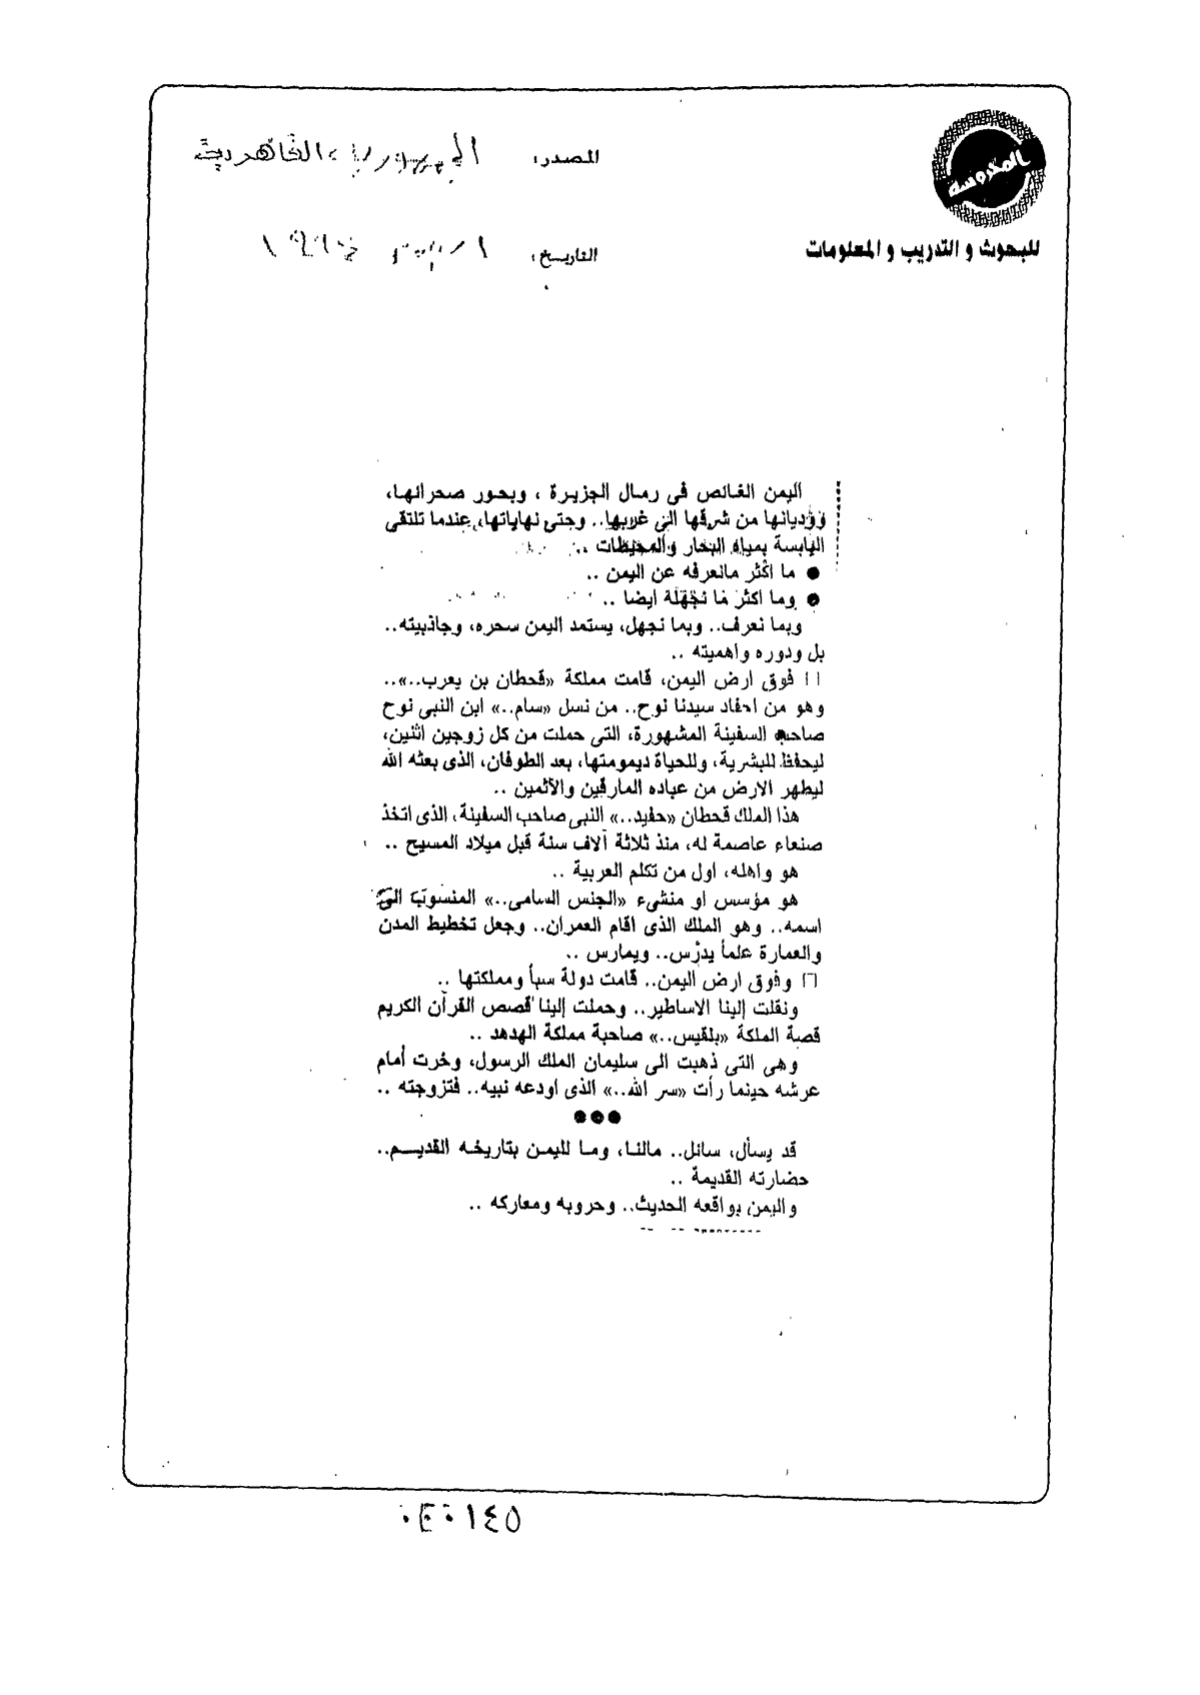 المحروسة
للبحوث و التدريب و المعلومات
المصدر: الجمهورية القاهرية
التاريخ:
اليمن الغائص فى رمال الجزيرة ، وبحور صحرائها،
ووديانها من شرقها الى غربها.. وحتى نهاياتها، عندما تلتقى
اليابسة بمياه البحار والمحيطات ..
● ما اكثر مانعرفه عن اليمن ..
● وما اكثر ما نجهله ايضا ..
وبما نعرف.. وبما نجهل، يستمد اليمن سحره، وجاذبيته..
بل ودوره واهميته ..
فوق ارض اليمن، قامت مملكة «قحطان بن يعرب..»..
وهو من احفاد سيدنا نوح.. من نسل «سام..» ابن النبى نوح
صاحب السفينة المشهورة، التى حملت من كل زوجين اثنين،
ليحفظ للبشرية، وللحياة ديمومتها، بعد الطوفان، الذى بعثه الله
ليطهر الارض من عباده المارقين والآثمين ..
هذا الملك قحطان «حفيد..» النبى صاحب السفينة، الذى اتخذ
صنعاء عاصمة له، منذ ثلاثة آلاف سنة قبل ميلاد المسيح ..
هو واهله، اول من تكلم العربية ..
هو مؤسس او منشىء «الجنس السامى..» المنسوب الى
اسمه.. وهو الملك الذى اقام العمران.. وجعل تخطيط المدن
والعمارة علماً يدرّس.. ويمارس ..
وفوق ارض اليمن.. قامت دولة سبأ ومملكتها ..
ونقلت إلينا الاساطير.. وحملت إلينا قصص القرآن الكريم
قصة الملكة «بلقيس..» صاحبة مملكة الهدهد ..
وهى التى ذهبت الى سليمان الملك الرسول، وخرت أمام
عرشه حينما رأت «سر الله..» الذى اودعه نبيه.. فتزوجته ..
●●●
قد يسأل، سائل.. مالنا، وما لليمن بتاريخه القديم..
حضارته القديمة ..
واليمن بواقعه الحديث.. وحروبه ومعاركه ..